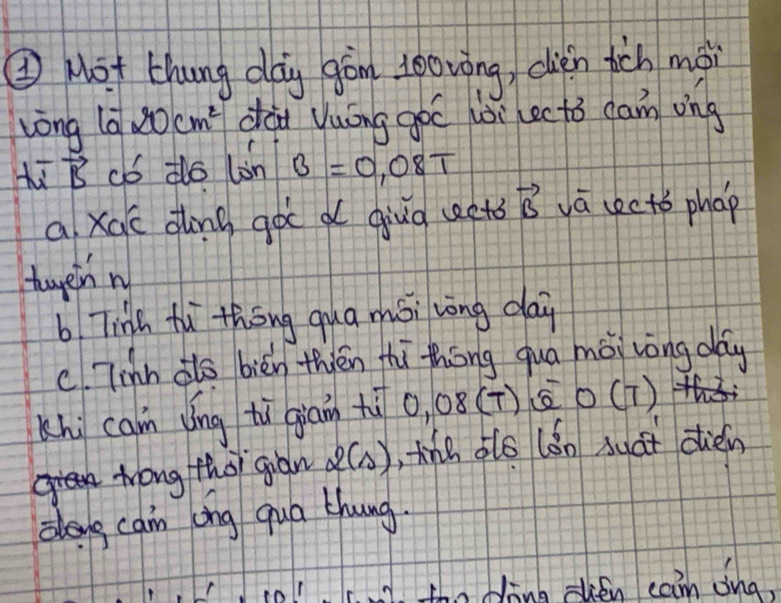 ① Một khung dây gồm 100 vòng, diện tích mỗi
vòng là 20 cm² đặt vuông góc với vectơ cảm ứng
từ B⃗ có độ lớn B = 0,08T
a. Xác định góc α giữa vectơ B⃗ và vectơ pháp
tuyến n
b. Tính từ thông qua mỗi vòng dây
c. Tính độ biến thiên từ thông qua mỗi vòng dây
khi cảm ứng từ giảm từ 0,08 (T) về 0 (T) thời
gian trong thời gian 2(s), tính độ lớn suất điện
động cảm ứng qua khung.
dòng điện cảm ứng